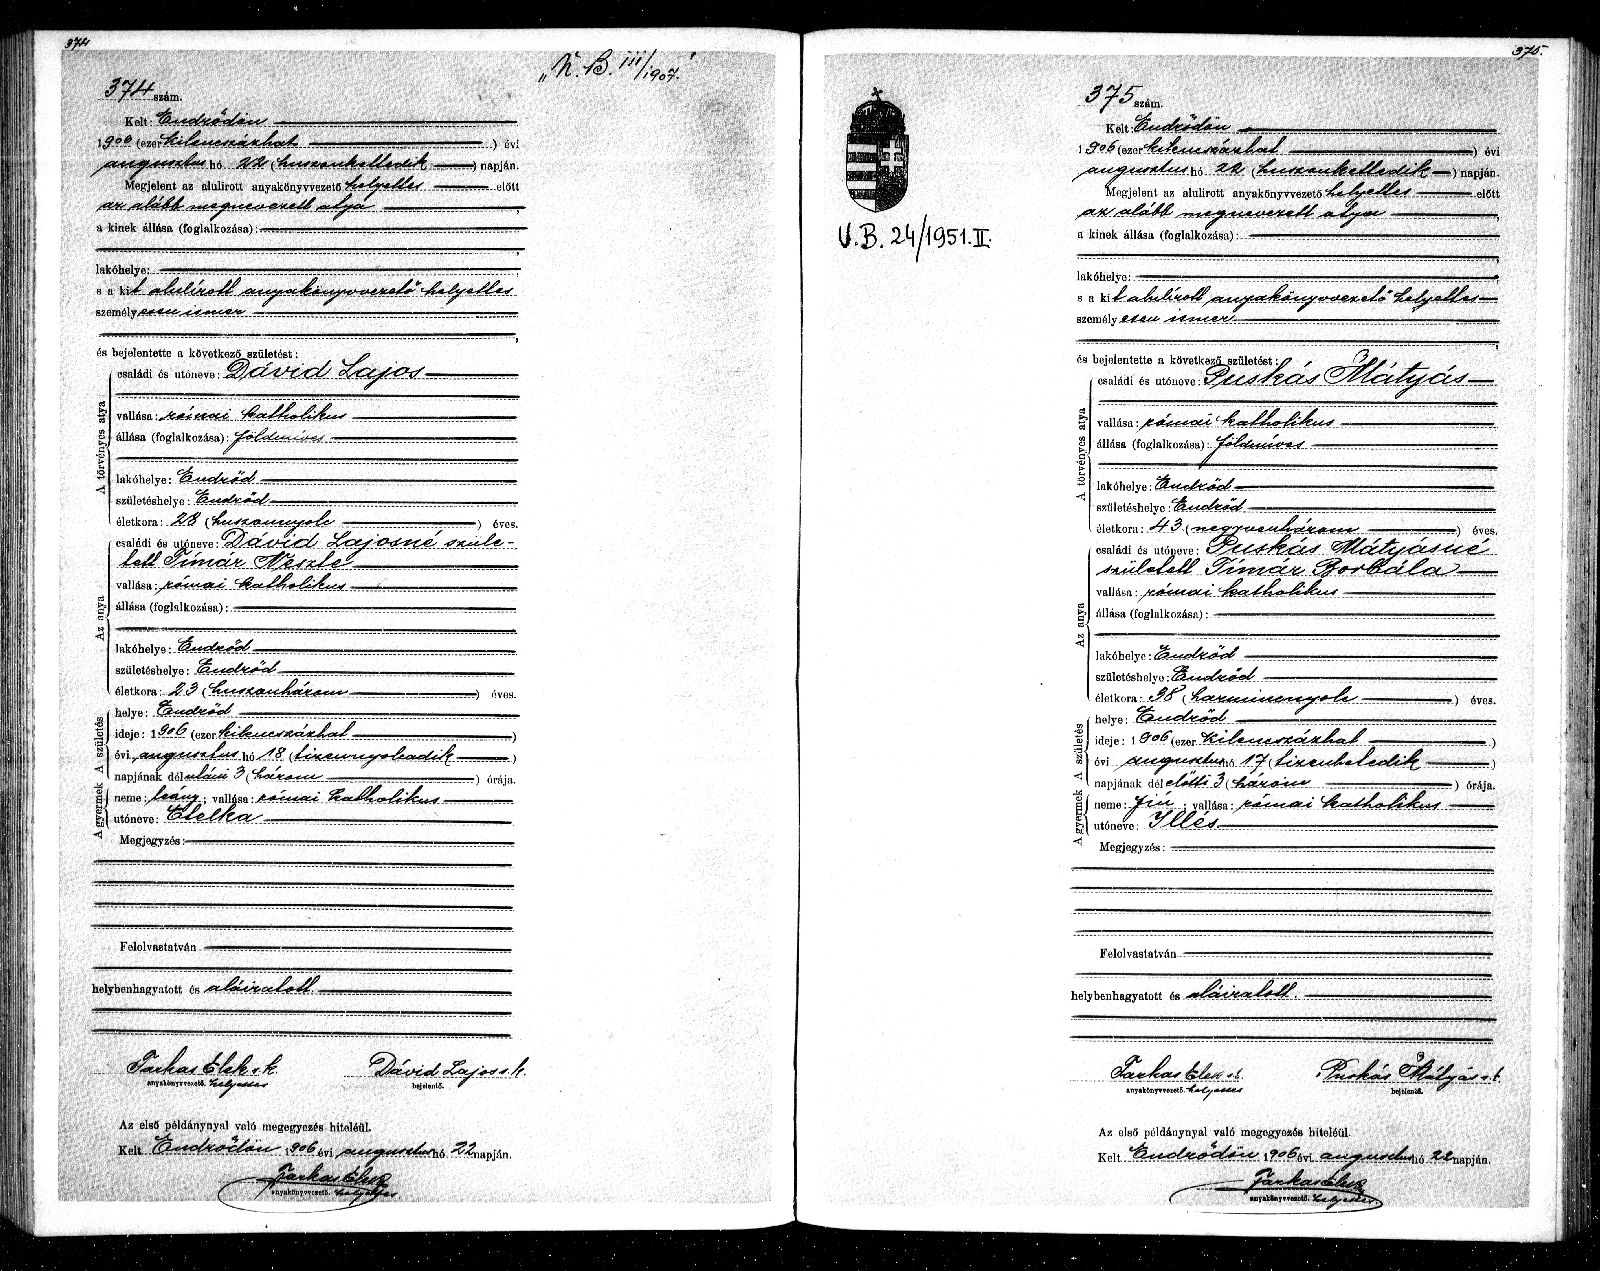 374
„N. B. III/1907."
374 szám.
Kelt: Endrődön
1906 (ezer kilenczázhat ) évi
augusztus hó 22 (huszonkettedik ) napján.
Megjelent az alulirott anyakönyvvezető helyettes előtt
az alább megnevezett atya ,
a kinek állása (foglalkozása):
lakóhelye: ,
s a kit alulírott anyakönyvvezető helyettes
személyesen ismer
,
és bejelentette a következő születést:
A törvényes atya
családi és utóneve: Dávid Lajos
vallása: római katholikus
állása (foglalkozása): földmíves
lakóhelye: Endrőd
születéshelye: Endrőd
életkora: 28 (huszonnyolc ) éves.
Az anya
családi és utóneve: Dávid Lajosné szüle-
tett Tímár Neszte
vallása: római katholikus
állása (foglalkozása):
lakóhelye: Endrőd
születéshelye: Endrőd
életkora: 23 (huszonhárom ) éves.
A gyermek A születés
helye: Endrőd
ideje: 1906 (ezer kilenczázhat )
évi augusztus hó 18 (tizennyolcadik )
napjának délutáni 3 (három ) órája.
neme: leány; vallása: római katholikus
utóneve: Etelka
Megjegyzés:
Felolvastatván
helybenhagyatott és aláiratott.
Farkas Elek s. k. Dávid Lajos s. k.
anyakönyvvezető. helyettes bejelentő.
Az első példánynyal való megegyezés hiteléül.
Kelt Endrődön 1906 évi augusztus hó 22 napján.
Farkas Elek
anyakönyvvezető. helyettes
375.
V. B. 24/1951. II.
375 szám.
Kelt: Endrődön
1906 (ezer kilenczázhat ) évi
augusztus hó 22 (huszonkettedik ) napján.
Megjelent az alulirott anyakönyvvezető helyettes előtt
az alább megnevezett atya ,
a kinek állása (foglalkozása):
lakóhelye: ,
s a kit alulírott anyakönyvvezető helyettes
személyesen ismer
,
és bejelentette a következő születést:
A törvényes atya
családi és utóneve: Puskás Mátyás
vallása: római katholikus
állása (foglalkozása): földmíves
lakóhelye: Endrőd
születéshelye: Endrőd
életkora: 43 (negyvenhárom ) éves.
Az anya
családi és utóneve: Puskás Mátyásné
született Tímár Borbála
vallása: római katholikus
állása (foglalkozása):
lakóhelye: Endrőd
születéshelye: Endrőd
életkora: 38 (harmincnyolc ) éves.
A gyermek A születés
helye: Endrőd
ideje: 1906 (ezer kilenczázhat )
évi augusztus hó 17 (tizenhetedik )
napjának délelőtti 3 (három ) órája.
neme: fiú; vallása: római katholikus
utóneve: Illés
Megjegyzés:
Felolvastatván
helybenhagyatott és aláiratott.
Farkas Elek s. k. Puskás Mátyás s. k.
anyakönyvvezető. helyettes bejelentő.
Az első példánynyal való megegyezés hiteléül.
Kelt Endrődön 1906 évi augusztus hó 22 napján.
Farkas Elek
anyakönyvvezető. helyettes